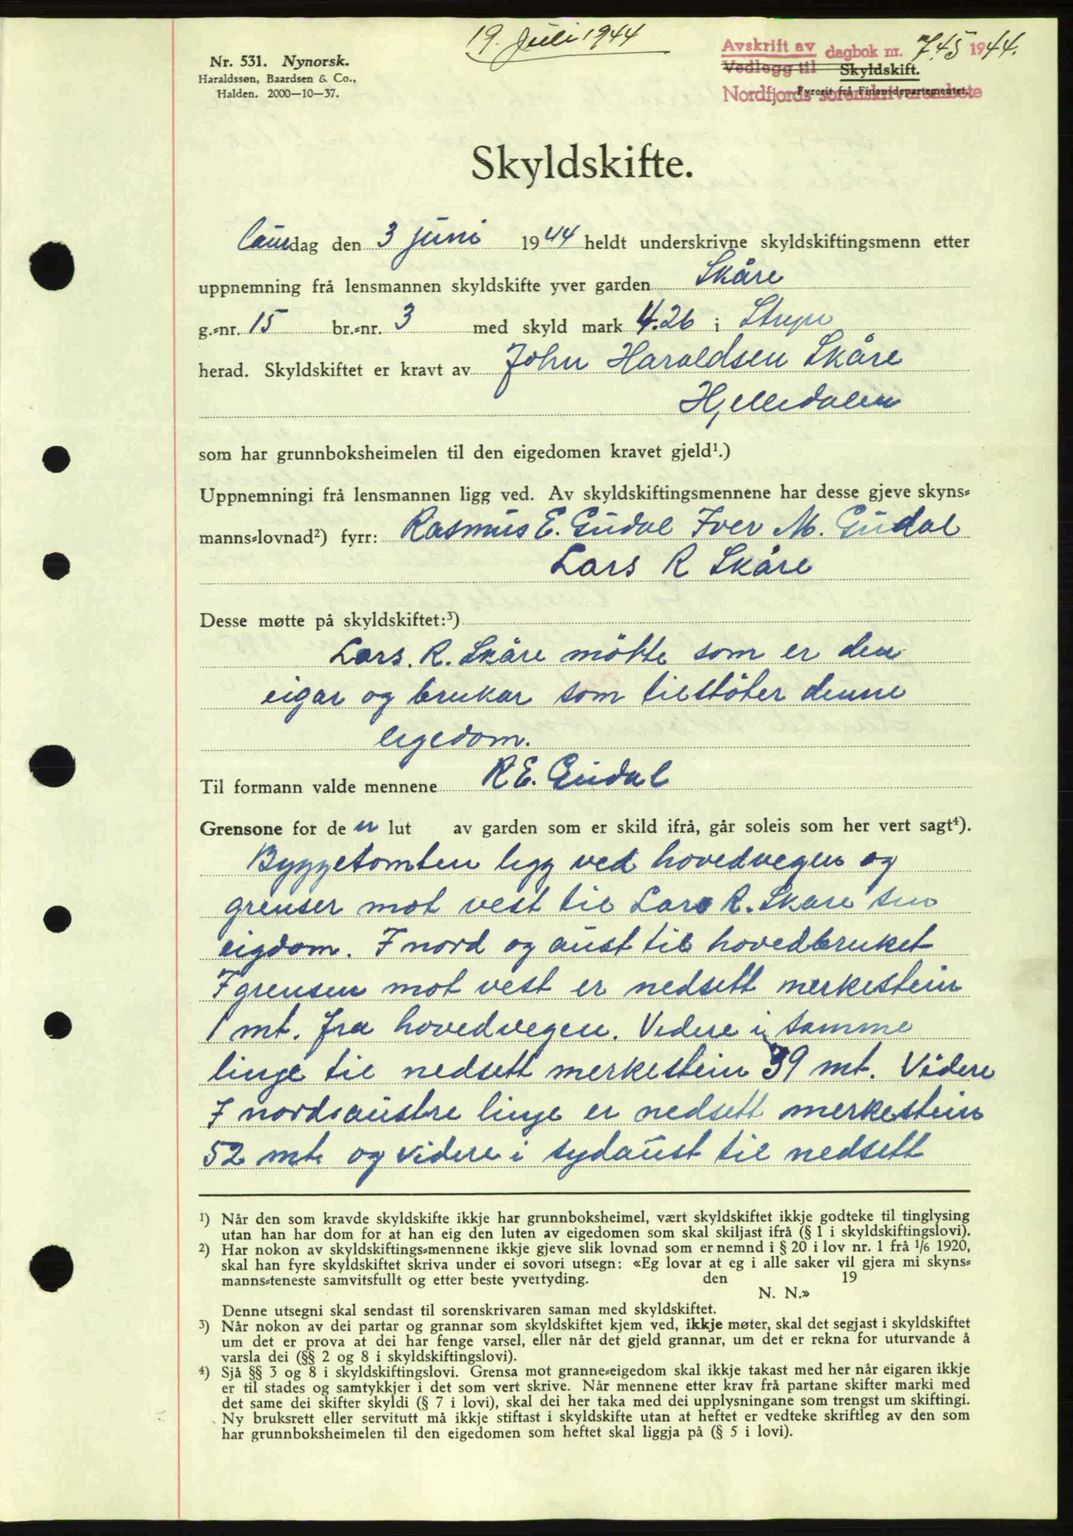 19. Juli 1944
Nr. 531. Nynorsk.
Haraldssøn, Baardsen & Co.,
Halden. 2000—10—37.
Avskrift av dagbok nr. 745 1944.
Vedlegg til Skyldskift.
Fyreorit frå Finansdepartementet.
Nordfjords sorenskrivarembete
Skyldskifte.
Laurdag den 3 juni 1944 heldt underskrivne skyldskiftingsmenn etter
uppnemning frå lensmannen skyldskifte yver garden Skåre
g.-nr. 15 br.-nr. 3 med skyld mark 4.26 i Stryn
herad. Skyldskiftet er kravt av John Haraldsen Skåre
Hjelledalen
som har grunnboksheimelen til den eigedomen kravet gjeld¹.)
Uppnemningi frå lensmannen ligg ved. Av skyldskiftingsmennene har desse gjeve skyns-
manns-lovnad²) fyrr: Rasmus E. Gudal Iver M. Gudal
Lars R Skåre
Desse møtte på skyldskiftet:³)
Lars. R. Skåre mötte som er den
eigar og brukar som tilstöter denne
eigedom.
Til formann valde mennene R E. Gudal
Grensone for de n lut av garden som er skild ifrå, går soleis som her vert sagt⁴).
Byggetomten ligg ved hovedvegen og
grenser mot vest til Lars R. Skare sin
eigdom. I nord og aust til hovedbruket
I grensen mot vest er nedsett merkestein
1 mt. fra hovedvegen. Videre i samme
linge til nedsett merkestein 39 mt. Videre
I nordaustre linge er nedsett merkestein
52 mt. og videre i sydaust til nedsett
¹) Når den som kravde skyldskifte ikkje har grunnboksheimel, vært skyldskiftet ikkje godteke til tinglysing
utan han har dom for at han eig den luten av eigedomen som skal skiljast ifrå (§ 1 i skyldskiftingslovi).
²) Har nokon av skyldskiftings-mennene ikkje gjeve slik lovnad som er nemnd i § 20 i lov nr. 1 frå ¹/6 1920,
skal han fyre skyldskiftet skriva under ei sovori utsegn: «Eg lovar at eg i alle saker vil gjera mi skyns-
manns-teneste samvitsfullt og etter beste yvertyding. den 19
N. N.»
Denne utsegni skal sendast til sorenskrivaren saman med skyldskiftet.
³) Når nokon av dei partar og grannar som skyldskiftet kjem ved, ikkje møter, skal det segjast i skyldskiftet
um det er prova at dei har fenge varsel, eller når det gjeld grannar, um det er rekna for uturvande å
varsla dei (§§ 2 og 8 i skyldskiftingslovi).
⁴) Sjå §§ 3 og 8 i skyldskiftingslovi. Grensa mot granne-eigedom skal ikkje takast med her når eigaren ikkje
er til stades og samtykkjer i det som vert skrive. Når mennene etter krav frå partane skifter marki med
det same dei skifter skyldi (§ 7 i lovi), skal dei her taka med dei upplysningane som trengst um skiftingi.
Ny bruksrett eller servitutt må ikkje stiftast i skyldskifte utan at heftet er vedteke skriftleg av den som
har grunnboksheimelen til den eigedomen som heftet skal liggja på (§ 5 i lovi).